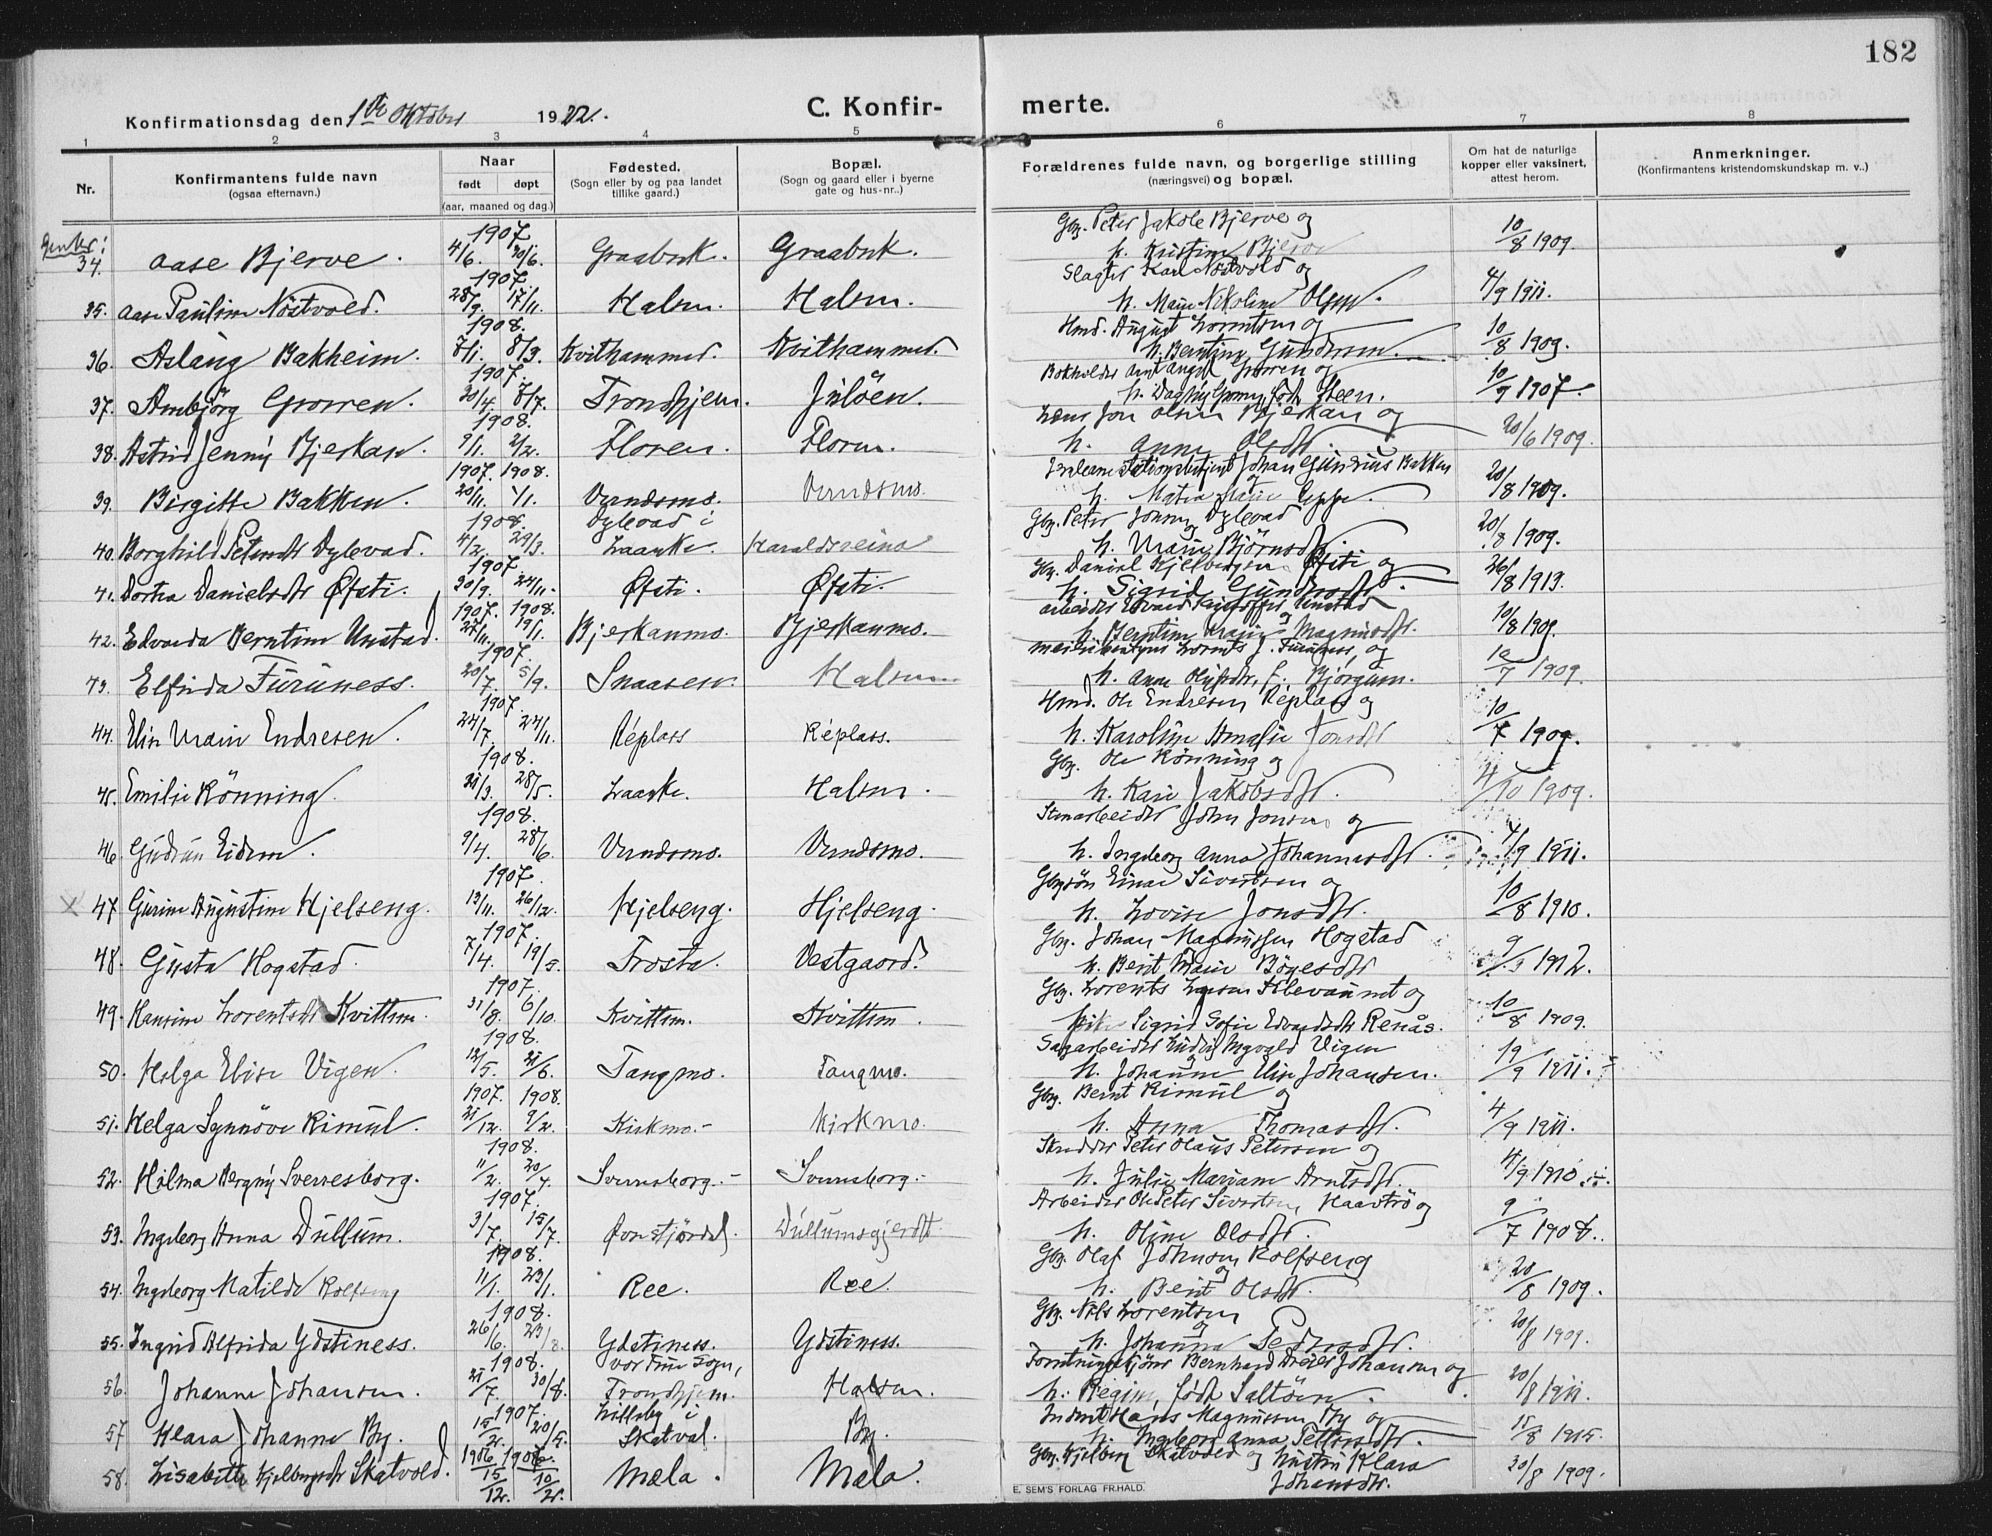 182
Konfirmationsdag den 1ste Oktober 1922.
C. Konfir- merte.
1 2 3 4 5 6 7 8
Nr.
Konfirmantens fulde navn
(ogsaa efternavn.)
Naar
født døpt
(aar, maaned og dag.)
Fødested.
(Sogn eller by og paa landet
tillike gaard.)
Bopæl.
(Sogn og gaard eller i byerne
gate og hus-nr..)
Forældrenes fulde navn, og borgerlige stilling
(næringsvei) og bopæl.
Om hat de naturlige
kopper eller vaksinert,
attest herom.
Anmerkninger.
(Konfirmantens kristendomskundskap m. v..)
Jenter:
34. Aase Bjerve. 1907 4/6. 20/6. Graabrk. Graabrk. Gbr. Peter Jakole Bjerve og h. Kristine Bjerve 10/8 1909.
35. Aase Pauline Nöstvold. 1907. 28/9. 17/11. Halsen. Halsen. Slagter Karl Nöstvold og h. Marie Nikoline Olsen. 4/9 1911.
36. Aslaug Bakheim. 1908. 7/1. 8/3. Kvithammer. Kvithammer. Hmd. August Lorentsen og h. Berntine Gundersen. 10/8 1909.
37. Ambjörg Grorren. 1907. 20/4. 8/7. Trondhjem. Julöen. Bokholder og h. Dagny født Steen. 10/9 1907.
38. Astrid Jenny Bjerkan. 1908. 9/1. 2/2. Floren. Floren. Jon Olsen Bjerkan og h. Anne Olsdtr. 20/6 1909.
39. Birgitte Bakken. 1907. 1908. 20/11. 1/1. Verndsmo. Verndsmo. Johan Gunerius Bakken og h. Marie 20/8 1909.
40. Borghild Petersdtr Dylevad. 1908. 4/2. 29/3. Dylevad i Laanke. Haraldsreina Gbr. Peter Johnny Dylevad og h. Marie Björnsdtr. 20/8 1909.
41. Dortea Danielsdtr Øfsti. 1907. 30/9. 24/11. Øfsti. Øfsti. Gbr. Daniel Kjelbergsen Øfsti og h. Sigrid Gundersdtr. 26/8 1913.
42. Edvarda Berntine Unstad. 1907. 1908. 27/11. 19/1. Bjerkanmo. Bjerkanmo. Arbeider Edvard Kristoffer Unstad og h. Berntine Marie Magnusdtr. 10/8 1909.
43. Elfrida Furuness. 1907. 20/7. 5/9. Snaasen. Halsen. Meieribestyrer Lorents J. Furuness, og h. Anne Olufsdtr, f. Björgum. 10/7 1909.
44. Elise Marie Endresen. 1907. 22/7. 24/11. Réplass Réplass. Hmd. Ole Endresen Réplass og h. Karoline Amalie Jonsdtr 10/7 1909.
45. Emilie Rönning. 1908. 21/3. 28/5. Laanke. Halsen. Gbr. Ole Rönning og h. Kari Jakobsdtr. 4/10 1909.
46. Gudrun Eidem. 1908. 9/4. 28/6. Verndsmo. Verndsmo. Stenarbeider John Jonsen og h. Ingeborg Anna Johannesdtr. 4/9 1911.
X 47. Gurine Augustine Hjelseng. 1907. 13/11. 26/12. Hjelseng. Hjelseng. Gbrsön Einar Sivertsen og h. Lovise Jonsdtr. 10/8 1910.
48. Gusta Hogstad. 1907. 7/4. 19/5. Frosta. Vestgaard. Gbr. Johan Magnussen Hogstad h. Berit Marie Börgesdtr 9/9 1912.
49. Hansine Lorentsdtr Kvittem. 1907. 31/8. 6/10. Kvittem. Kvittem. Gbr. Lorents Larsen Klevaunet og Sigrid Sofie Edvardsdtr Renås. 10/8 1909.
50. Helga Elise Vigen. 1908. 12/5. 21/6. Tangmo. Tangmo. Sagarbeider Ludvig Ingvald Vigen og h. Johanne Elise Johansen. 19/9 1911.
51. Helga Synnöve Rimul. 1907. 1908. 21/12. 9/2. Kirkmo. Kirkmo. Gbr. Bernt Rimul og h. Anna Thomasdtr. 4/9 1911.
52. Hilma Bergny Sverresborg. 1908. 11/2. 20/4. Sverresborg. Sverresborg. Skredder Peter Olaus Petersen og h. Julie Mariam Arntsdtr. 4/9 1910.
53. Ingeborg Anna Dullum. 1907. 3/7. 15/7. Övrestjördal. Dullumsgjerdet Arbeider Ole Peter Sivertsen Haavtrö og h. Oline Olsdtr. 9/7 1908.
54. Ingeborg Matilde Rolfseng 1908. 11/1. 23/1. Ree. Ree. Gbr. Olaf Johnsen Rolfseng og h. Berit Olsdtr. 20/8 1909.
55. Ingrid Alfrida Ydstiness. 1908. 26/6. 23/8. Ydstiness. Ydstiness. Gbr. Nils Lorentsen og h. Johanna Pedersdtr. 20/8 1909.
56. Johanne Johansen. 1908. 21/7. 30/8. Vor Frue Sogn, Trondhjem. Halsen. Forretningsförer Bernhard Dreier Johansen og h. Regine, født Saltöen. 20/8 1911.
57. Klara Johanne By. 1907. 15/2. 20/5. Lilleby i Skatval. By. Inderst Hans Magnussen By og h. Ingeborg Anna Pettersdtr. 15/8 1915.
58. Lisabeth Kjelbergsdtr Skatvold. 1906 1908. 15/12. 10/2. Mæla. Mæla. Gbr. Kjelberg Skatvold og hustru Klara Johansdtr. 20/8 1909.
E. SEM'S FORLAG FR.HALD.